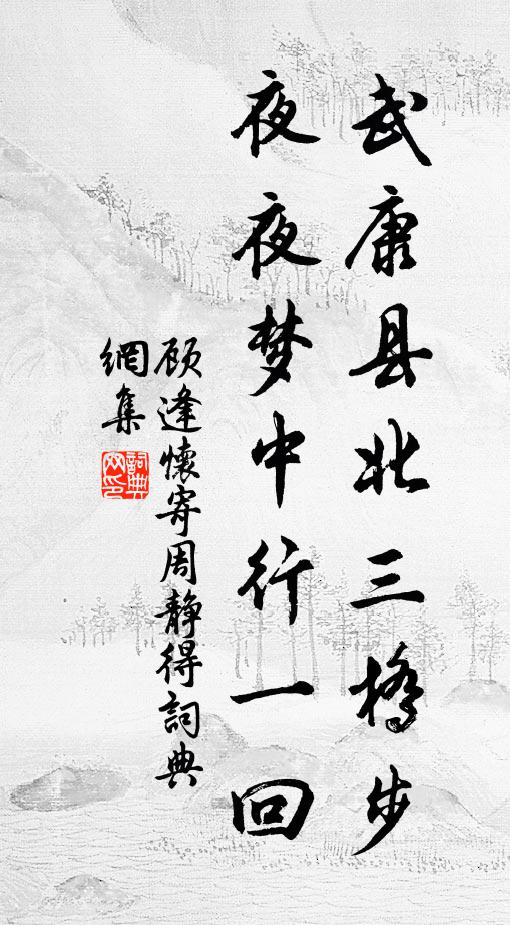 武康县北三橋步
夜夜梦中行一回
顾逢懷寄周靜得詞典
網集
詞典網印